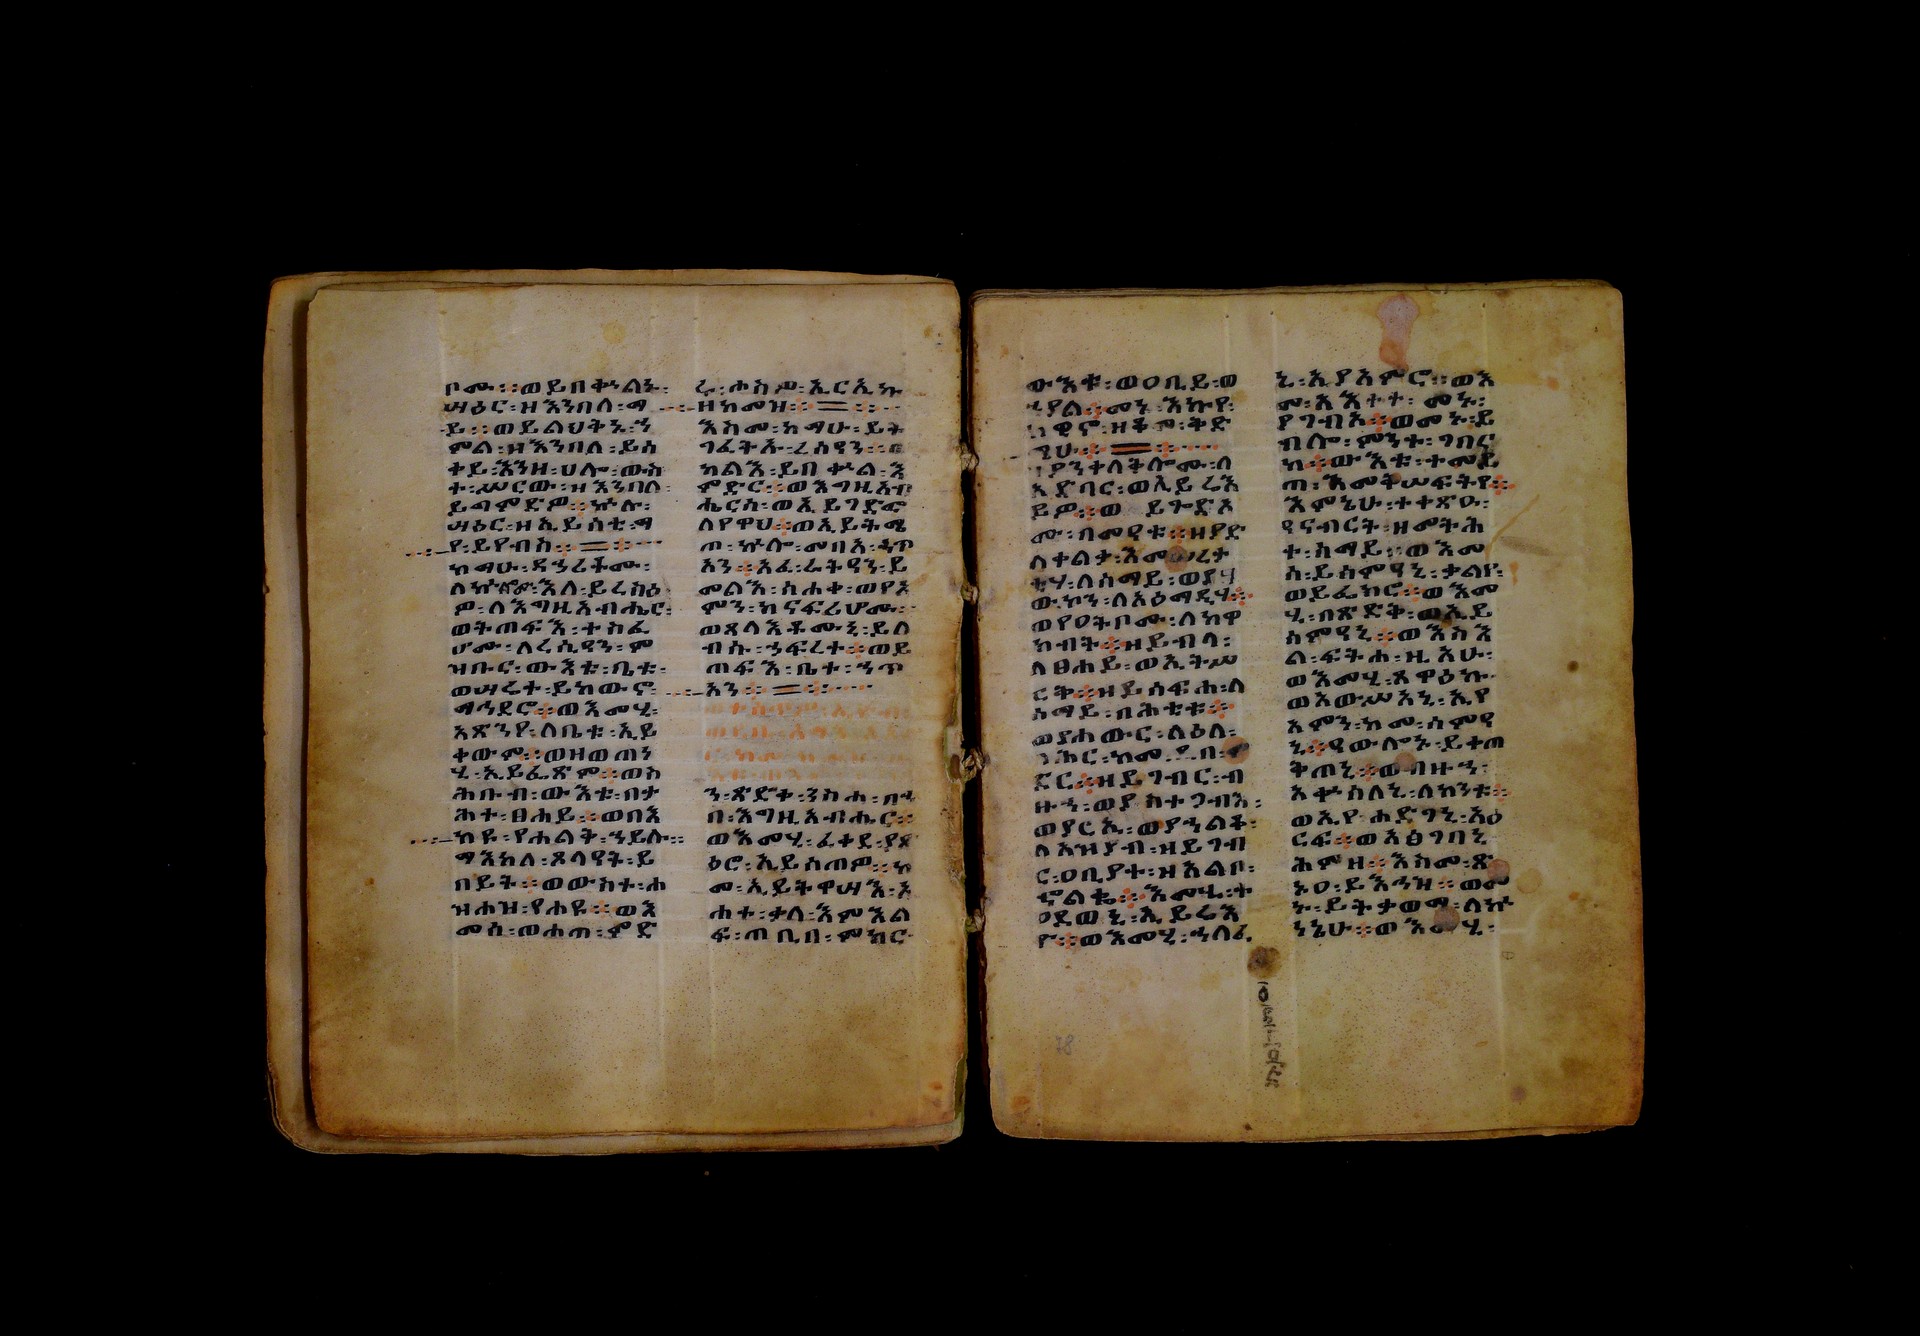 ቦሙ ። ወይበቍልኑ ፡
ሣዕር ፡ ዘእንበለ ፡ ማ
ይ ። ወይልህቅኑ ፡
ምል ፡ ዘእንበለ ፡ ይሰ
ተይ ፡ እንዘ ፡ ሀሎ ፡ ውስ
ተ ፡ ሥርው ፡ ዘእንበለ ፡
ይጠምድዎ ። ኵሉ ፡
ሣዕር ፡ ዘኢይሰቲ ፡ ማ
የ ፡ ይየብስ ።
ከማሁ ፡ ዳኅሪቶሙ ፡
ለኵሎሙ ፡ እለ ፡ ይረስዕ
ዎ ፡ ለእግዚአብሔር ፡
ወትጠፍእ ፡ ተስፈ
ሆሙ ፡ ለረሲዓን ፡ ም
ዝቡር ፡ ውእቱ ፡ ቤቱ ፡
ወሣሬተ ፡ ይከውኖ ፡
ማኅደሮ ። ወእመሂ ፡
አጽንዖ ፡ ለቤቱ ፡ ኢይ
ቀውም ። ወዘወጠነ
ሂ ፡ ኢይፌጽም ። ወስ
ሕቡብ ፡ ውእቱ ፡ በታ
ሕተ ፡ ፀሐይ ። ወበእ
ከዩ ፡ የሐልቅ ፡ ኀይሉ ።
ማእከለ ፡ ጾላዓት ፡ ይ
በይት ። ወውስተ ፡ ሐ
ዝሐዝ ፡ የሐዩ ። ወእ
መሰ ፡ ወሐጠ ፡ ምድ
ሬ ፡ ሐሰዎ ፡ ኢርኢኩ
ዘከመዝ ።
እስመ ፡ ከማሁ ፡ ይት
ገፈትኡ ፡ ረሲዓን ።
ካልእ ፡ ይበቍል ፡ እ
ምድር ። ወእግዚአብ
ሔርሰ ፡ ወኢይገድፎ
ለየዋህ ። ወኢይትሜ
ጦ ፡ ኵሎ ፡ መባአ ፡ ኃጥ
አን ። አፈ ፡ ራትዓን ፡ ይ
መልእ ፡ ስሐቀ ፡ ወየአ
ምን ፡ ከናፍሪሆሙ ።
ወጸላእቶሙኒ ፡ ይለ
ብሱ ፡ ኀፍረተ ። ወይ
ጠፍእ ፡ ቤተ ፡ ኀጥ
አን ።
ን ፡ ጽድቀ ፡ ንስሐ ፡ በኀ
በ ፡ እግዚአብሔር ።
ወእመሂ ፡ ፈቀደ ፡ ያጽ
ዕሮ ፡ ኢይሰጠዎ ። ከ
መ ፡ ኢይትዋሣእ ፡ አ
ሐተ ፡ ቃለ ፡ እምእል
ፍ ፡ ጠቢበ ፡ ምክር
ውእቱ ፡ ወዐቢይ ፡ ወ
ኀያል ። መኑ ፡ እኩየ ፡
ኮኖ ፡ ዘቆመ ፡ ቅድ
ሜሁ ።
ለአድባር ፡ ወኢይሬእ
ይዎ ። ወይገድአ
ሙ ፡ በመዓቱ ። ዘያድ
ለቀልቃ ፡ እመሠረት
ቲሃ ፡ ለሰማይ ፡ ወያሃ
ውኮን ፡ ለአዕማዲሃ ።
ወየዐትቦሙ ፡ ለከዋ
ክብት ። ዘይብላ ፡
ለፀሐይ ፡ ወኢትሠ
ርቅ ። ዘይሰፍሐ ፡ ለ
ሰማይ ፡ በሕቲቱ ።
ወያሐውር ፡ ላዕለ ፡
ባሕር ፡ ከመ ፡ ዲበ ፡
ድር ። ዘይገብር ፡ ብ
ዙኀ ፡ ወያስተጋብእ ፡
ወያርኢ ፡ ወያኀልቆ ፡
ለአዝያብ ፡ ዘይገብ
ር ፡ ዐቢያተ ፡ ዘአልቦ ፡
ኆልቈ ። እመሂ ፡ ተ
ዐደወኒ ፡ ኢይሬእ
ዮ ። ወእመሂ ፡ ኀለፈ
ኒ ፡ ኢያአምሮ ። ወእ
መ ፡ አእተተ ፡ መኑ ፡
ያገብእ ። ወመኑ ፡ ይ
ብሎ ፡ ምንተ ፡ ገበር
ከ ። ውእቱ ፡ ተመይ
ጠ ፡ እመትሠፍትየ ።
እምኔሁ ፡ ተተጽዑ ፡
ዓናብርት ፡ ዘመትሕ
ተ ፡ ሰማይ ። ወእመ
ሰ ፡ ይሰምዓኒ ፡ ቃልየ ፡
ወይፈክሮ ። ወእመ
ሂ ፡ በጽድቅ ። ወኢይ
ሰምዓኒ ። ወእስእ
ል ፡ ፍትሐ ፡ ዚአሁ ፡
ወእመሂ ፡ ጸዋዕኩ ፡
ወአውሥአኒ ፡ ኢየ
አምን ፡ ከመ ፡ ሰምዓ
ኒ ። ዓውሎኑ ፡ ይቀጠ
ቅጠኒ ። ወብዙኀ ፡
አቍስለኒ ፡ ለከንቱ ።
ወኢየሐድገኒ ፡ አዕ
ርፍ ። ወአፅገበኒ
ሕምዘ ። እስመ ፡ ጽ
ኑዐ ፡ ይእኅዝ ። ወመ
ኑ ፡ ይትቃወማ ፡ ለኵ
ነኔሁ ። ወእመሂ ፡
78